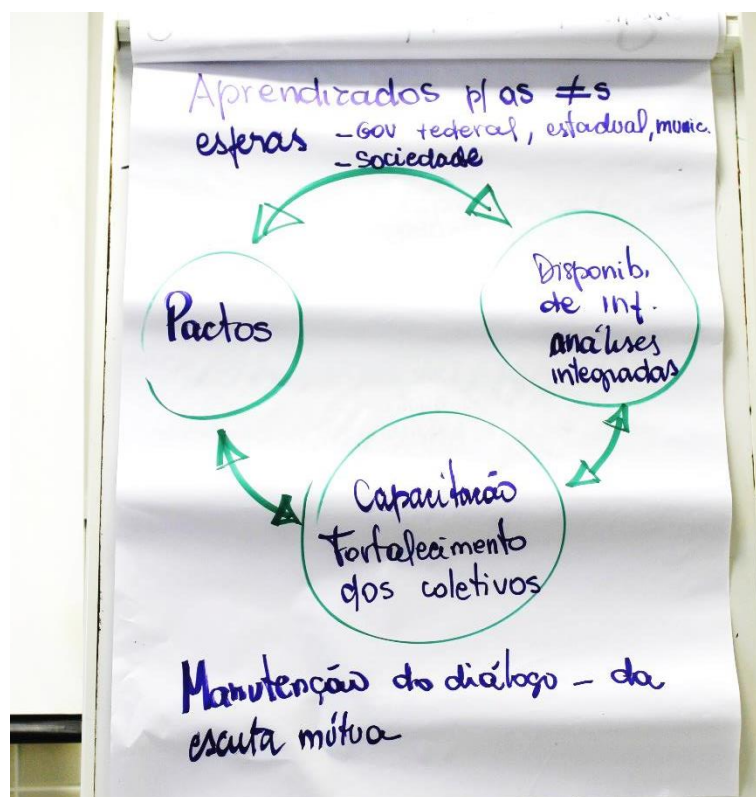 Aprendizados p/ as ≠s
esferas - Gov federal, estadual, munic.
- sociedade
Pactos
Disponib.
de inf.
análises
integradas
Capacitação
Fortalecimento
dos coletivos
Manutenção do diálogo - da
escuta mútua